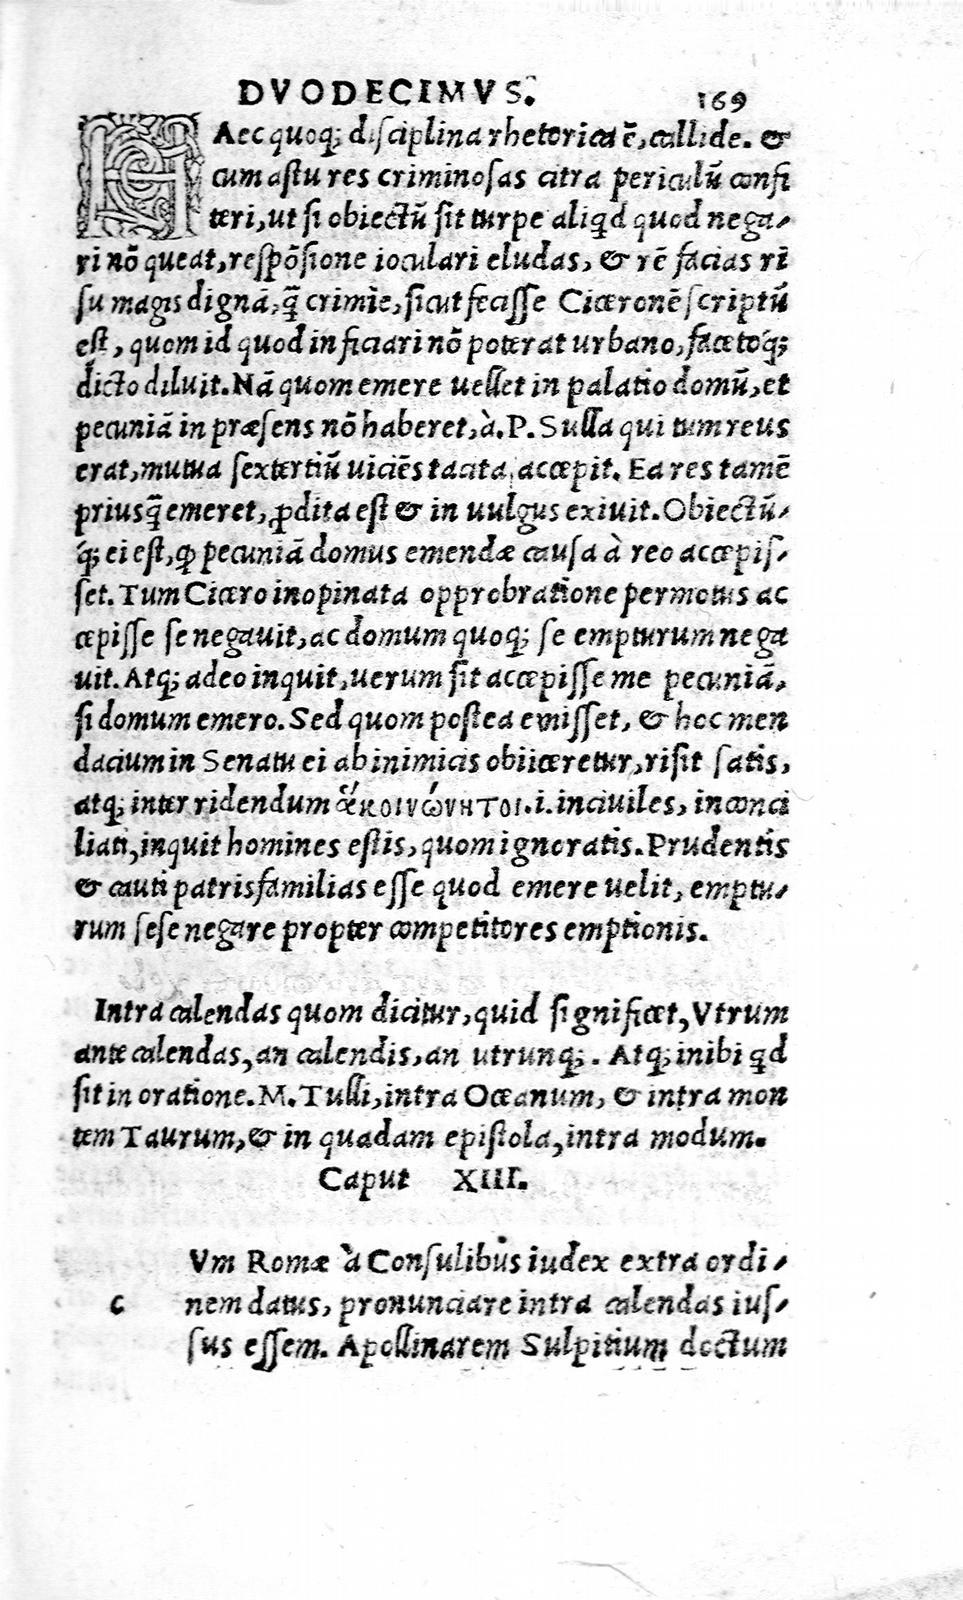 DVODECIMVS. 169
HAec quoq; disciplina rhetorica ē, callide. &
cum astu res criminosas citra periculū confi
teri, ut si obiectū sit turpe aliqd quod nega-
ri nō queat, respōsione ioculari eludas, & rē facias ri
su magis dignā, q̄ crimie, sicut fecisse Ciceronē scriptū
est, quom id quod inficiari nō poterat urbano, facetoq́;
dicto diluit. Nā quom emere uellet in palatio domū, et
pecuniā in præsens nō haberet, à. P. Sulla qui tum reus
erat, mutua sextertiū uiciēs tacita accepit. Ea res tamē
priusq̄ emeret, ꝓdita est & in uulgus exiuit. Obiectū-
q́; ei est, ꝙ pecuniā domus emendæ causa à reo accepis-
set. Tum Cicero inopinata opprobratione permotus ac
cepisse se negauit, ac domum quoq; se empturum nega
uit. Atq; adeo inquit, uerum sit accepisse me pecuniā,
si domum emero. Sed quom postea emisset, & hoc men
dacium in Senatu ei ab inimicis obiiceretur, risit satis,
atq; inter ridendum ἀκοινώνητοι .i. inciuiles, inconci
liati, inquit homines estis, quom ignoratis. Prudentis
& cauti patrisfamilias esse quod emere uelit, emptu-
rum sese negare propter competitores emptionis.
Intra calendas quom dicitur, quid significet, Vtrum
ante calendas, an calendis, an utrunq;. Atq; inibi qd
sit in oratione. M. Tulli, intra Oceanum, & intra mon
tem Taurum, & in quadam epistola, intra modum.
Caput XIII.
Vm Romæ à Consulibus iudex extra ordi-
c nem datus, pronunciare intra calendas ius-
sus essem. Apollinarem Sulpitium doctum